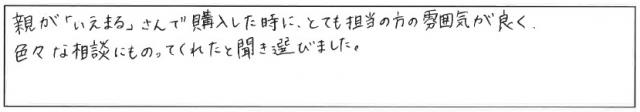 親が「いえまる」さんで購入した時に、とても担当の方の雰囲気が良く、
色々な相談にものってくれたと聞き選びました。